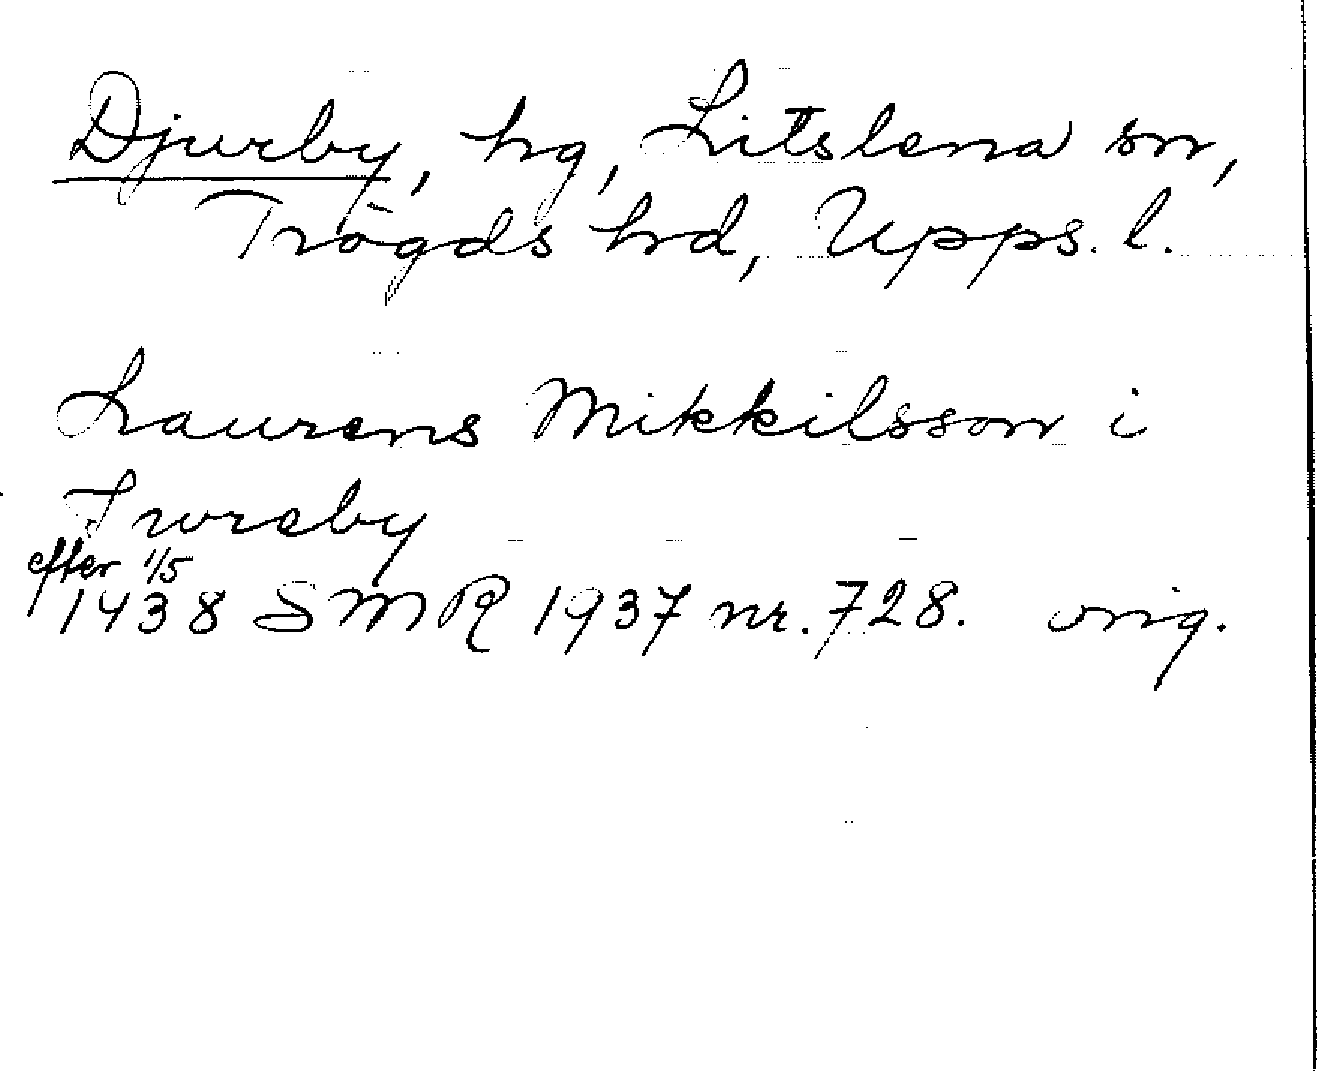 Djurby, hg, Litslena sn,
Trögds hd, Upps. l.
Laurens Mikkilsson i
Jwreby
efter 1/5
1438 SMR 1937 nr. 728. orig.